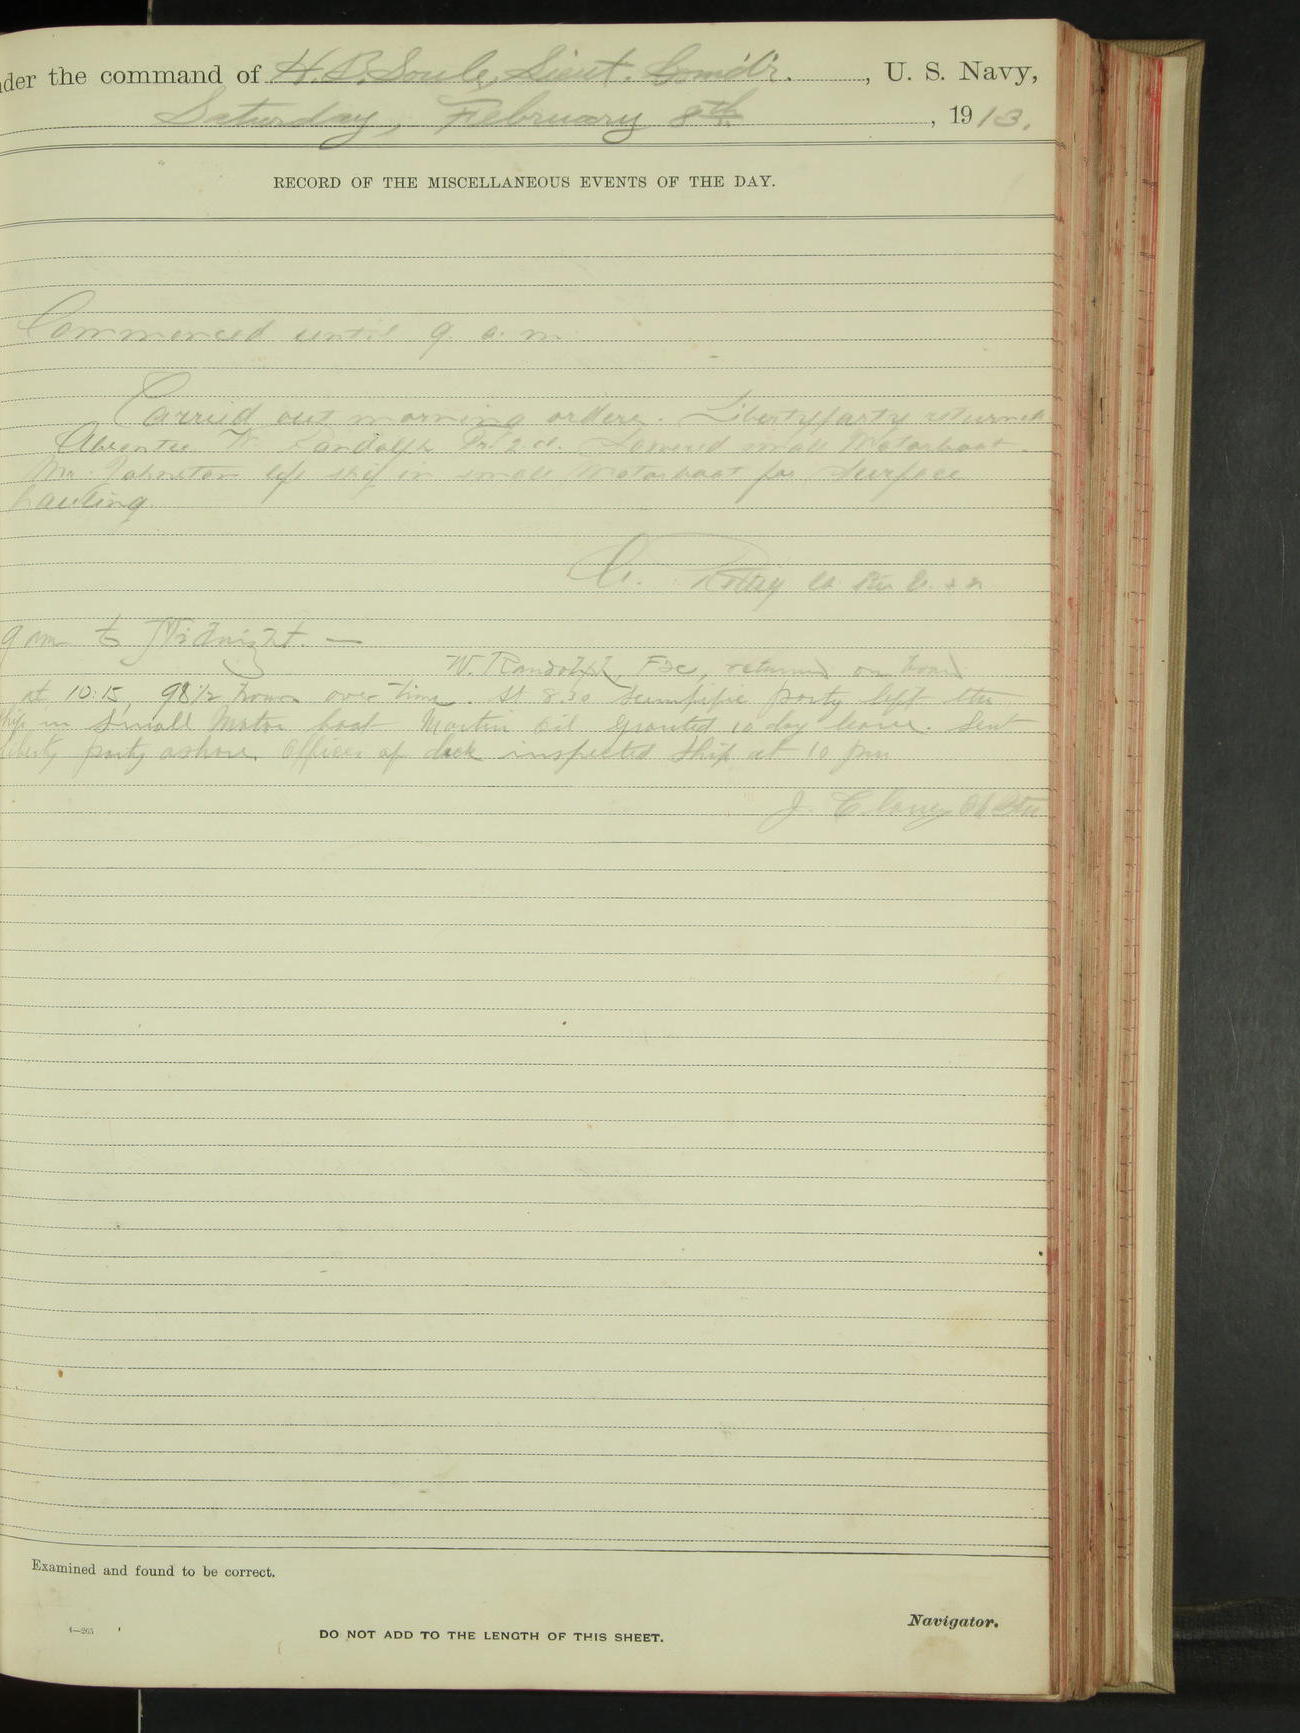 nder the command of H. B. Soule, Lieut. Comd'r., U. S. Navy,
Saturday, February 8th, 1913.
RECORD OF THE MISCELLANEOUS EVENTS OF THE DAY.
Commenced until 9 a. m.
Carried out morning orders. Liberty party returned
Absentee W. Randolph Fr. 2 cl. Lowered small Motorboat.
Mr. Johnston left ship in small Motorboat for Surface
hauling.
9 am to Midnight. —
W. Randolph, F2c, returned on board
at 10:15, 98 1/2 hours over time. At 8.30 party left the
ship in Small Motor boat Martin Oil granted 10 day leave. Sent
liberty party ashore. Officer of deck inspected ship at 10 pm
J.
Examined and found to be correct.
Navigator.
4—265
DO NOT ADD TO THE LENGTH OF THIS SHEET.